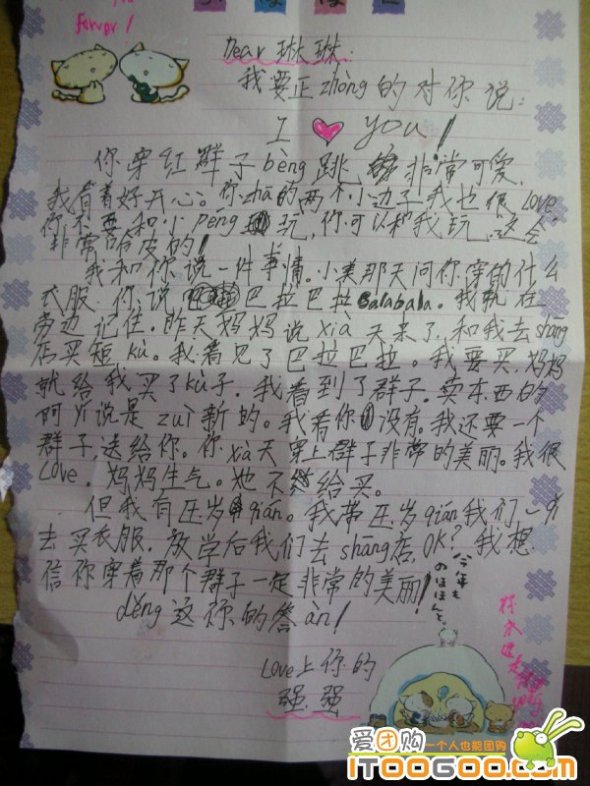 Forver!
Dear 琳琳:
我要正zhòng的对你说:
I ♥ you!
你穿红鞋子bèng跳,非常可爱,
我看着好开心。你zhā的两个小边子我也很Love
你不要和小Peng玩,你可以和我玩,这会
非常合皮的!
我和你说一件事情。小美那天问你穿的什么
衣服,你说巴拉巴拉Balabala。我就在
旁边记住。昨天妈妈说xià天来了,和我去shāng
店买短kù。我看见了巴拉巴拉。我要买,妈妈
就给我买了kù子。我看到了群子。卖东西的
阿yí说是zuì新的。我看你没有。我还要一个
群子,送给你。你xià天穿上群子非常的美丽。我很
Love。妈妈生气。她不给买。
但我有压岁qián。我带压岁qián我们一起
去买衣服,放学后我们去shāng店,OK?我想
信你穿着那个群子一定非常的美丽!
děng这你的答àn!
今年も
のほほんと。
Love上你的
强强
爱团购 一个人也能团购
iTOOGOO.com